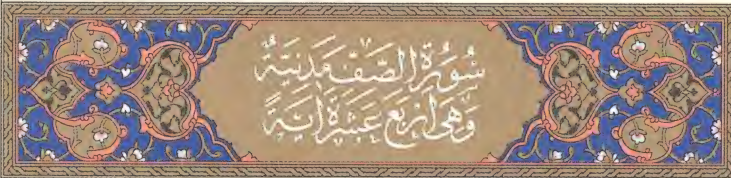 سُورَةُ الصَّفِّ مَدَنِيَّةٌ
وَهِيَ أَرْبَعَ عَشْرَةَ اٰيَةً